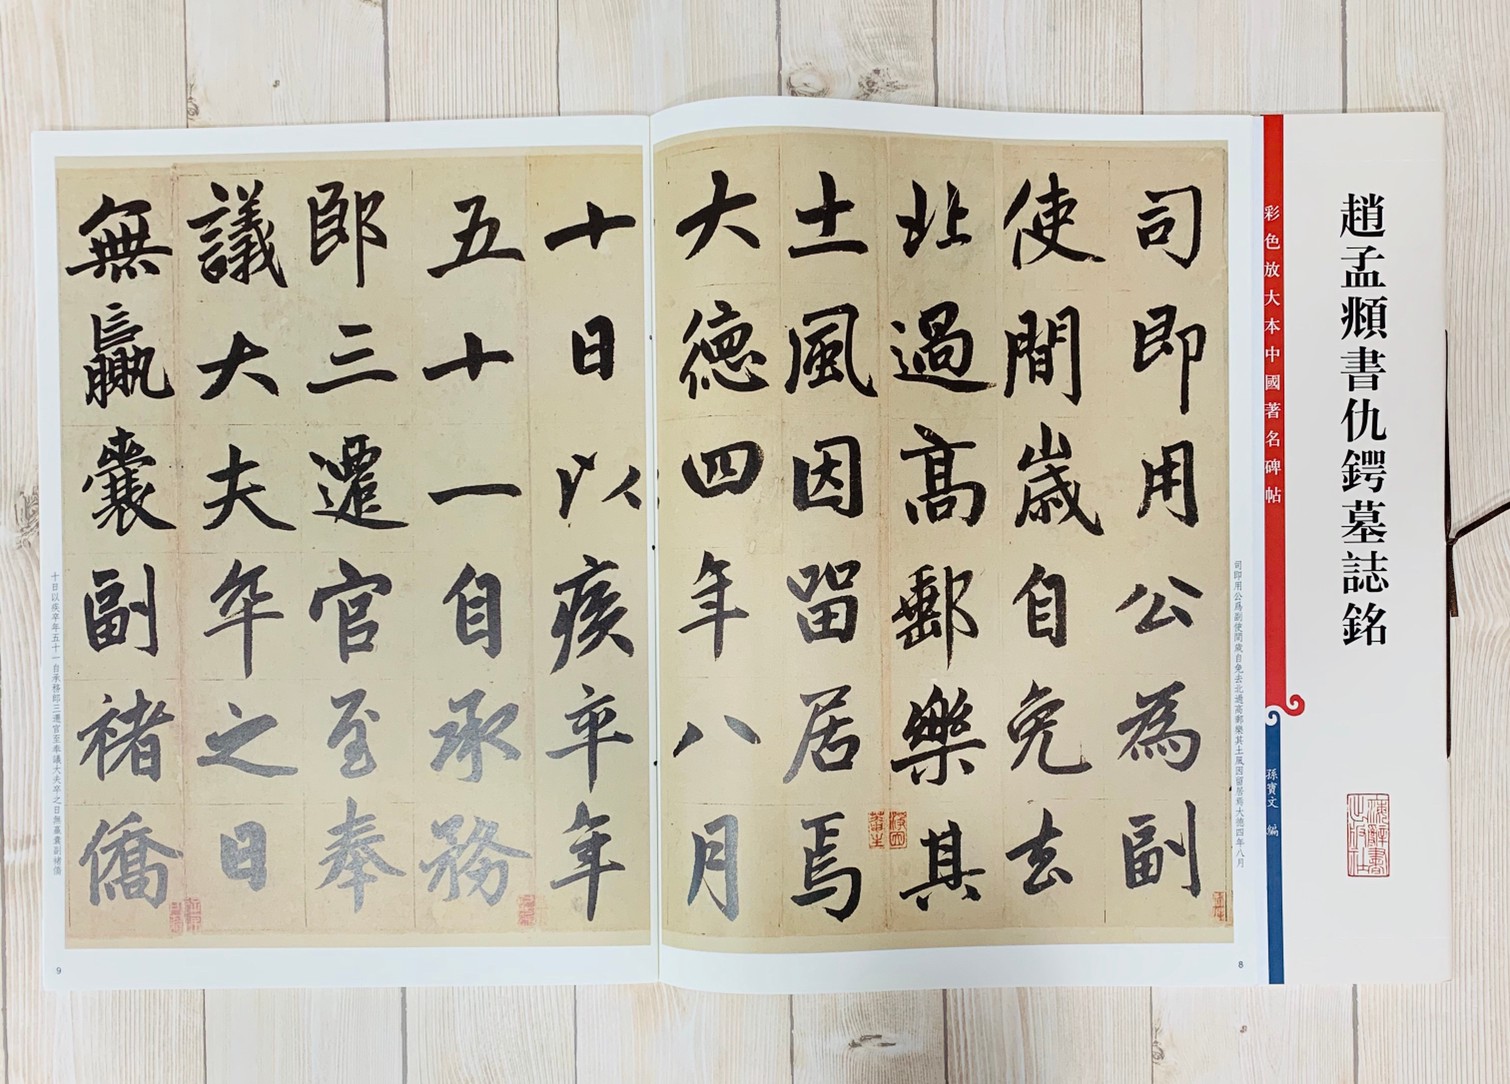 趙孟頫書仇鍔墓誌銘
彩色放大本中國著名碑帖
孫寶文 編
司即用公為副
使間歲自免去
北過高郵樂其
土風因留居焉
大德四年八月
司即用公爲副使間歲自免去北過高郵樂其土風因留居焉大德四年八月
8
十日以疾卒年
五十一自承務
郎三遷官至奉
議大夫卒之日
無贏囊副褚僑
十日以疾卒年五十一自承務郎三遷官至奉議大夫卒之日無贏囊副褚僑
9